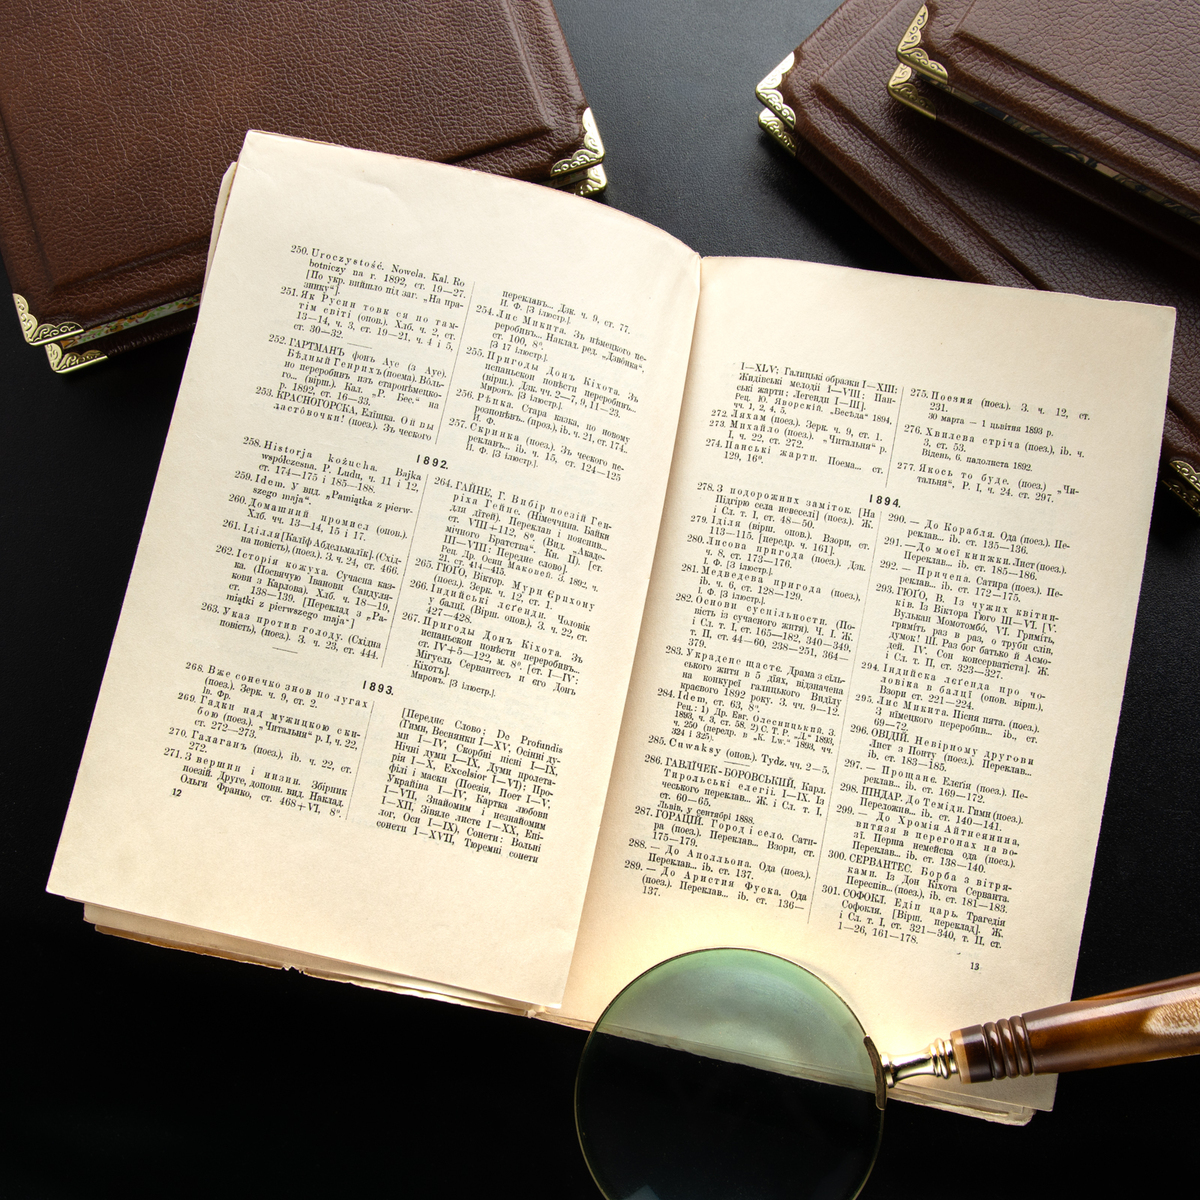 250. Uroczystość. Nowela. Kal. Ro
botniczy na r. 1892, ст. 19—27.
[По укр. вийшло під заг. „На пра-
знику“].
251. Як Русин товк си по там-
тім світі (опов.). Хлб. ч. 2, ст.
13—14, ч. 3, ст. 19—21, ч. 4 і 5,
ст. 30—32.
252. ГАРТМАНЪ фонъ Ауе (з Ауе).
Бѣдный Генрихъ (поема). Воль-
но переробив изъ старонѣмецко-
го... (вірш.). Кал. „Р. Бес.“ на
р. 1892, ст. 16—33.
253. КРАСНОГОРСКА, Елїшка. Ой вы
ластôвочки! (поез.). Зъ ческого
переклавъ... Дзк. ч. 9, ст. 77.
И. Ф. [З ілюстр.].
254. Лис Микита. Зъ нѣмецкого пе-
реробивъ... Наклад. ред. „Дзвôнка“.
ст. 100, 8⁰.
[З 17 ілюстр.].
255. Пригоды Донъ Кіхота. Зъ
испаньскои повѣсти переробивъ...
(вірш.). Дзк. чч. 2—7, 9, 11—23.
Миронъ. [З ілюстр.].
256. Рѣпка. Стара казка, по новому
розповѣвъ... (проз.), ib. ч. 21, ст. 174.
И. Ф.
257. Скринка (поез.). Зъ ческого пе-
реклавъ... ib. ч. 15, ст. 124—125
И. Ф. [З ілюстр.].
1892.
258. Historja kożucha. Bajka
współczesna. P. Ludu, ч. 11 і 12,
ст. 174—175 і 185—188.
259. Idem. У вид. „Pamiątka z pierw-
szego maja“.
260. Домашний промисл (опов.).
Хлб. чч. 13—14, 15 і 17.
261. Іділля [Каліф Абдельмалік]. (Схід-
на повість), (поез.). З. ч. 24, ст. 466.
262. Історія кожуха. Сучасна каз-
ка. (Посвячую Іванови Сандуля-
кови з Карлова). Хлб. ч. 18—19,
ст. 138—139. [Переклад з „Pa-
miątki z pierwszego maja“]
263. Указ против голоду. (Східна
повість), (поез.). З. ч. 23, ст. 444.
264. ГАЙНЕ, Г. Вибір поезій Ген-
ріха Гейне. (Німеччина. Байки
для дїтей). Переклав і пояснив...
ст. VIII+112, 8⁰. (Вид. „Акаде-
мічного Братства“. Кн. II).
III—VIII: Переднє слово]. [ст.
Рец. Др. Осип Маковей. З. 1892. ч.
21, ст. 414—415.
265. ГЮҐО, Віктор. Мури Єрихону
(поез.). Зерк. ч. 12, ст. 1.
266. Індийські лєґенди. Чоловік
у балці. (Вірш. опов.). З. ч. 22, ст.
427—428.
267. Пригоды Донъ Кіхота. Зъ
испаньскои повѣсти переробивъ...
ст. IV+5—122, м. 8⁰. [ст. I—IV:
Міґуель Сервантесъ и его Донъ
Кіхотъ].
Миронъ. [З ілюстр.].
1893.
268. Вже сонечко знов по лугах
(поез.). Зерк. ч. 9, ст. 2.
Ів. Фр.
269. Гадки над мужицкою ски-
бою (поез.). „Читальня“ р. І, ч. 22,
ст. 272—273.
270. Галаган (поез.), ib. ч. 22, ст.
272.
271. З вершин і низин. Збірник
поезій. Друге, доповн. вид. Наклад.
Ольги Франко, ст. 468+VI, 8⁰.
[Переднє Слово; De Profundis
(Гимн, Веснянки I—XV, Осінні ду-
ми I—IV, Скорбні пісні I—IX,
Нічні думи I—IX, Думи пролєта-
рія I—X, Excelsior I—VI); Про-
філї і маски (Поезія, Поет I—V,
Україна I—IV, Картка любови
I—VII, Знайомим і незнайомим
I—XII, Зівяле листє I—XX, Епі-
лог, Оси I—IX), Сонети: Вольні
сонети I—XVII, Тюремні сонети
12
I—XLV: Галицькі образки I—XIII:
Жидівські мельодії I—VIII; Пан-
ські жарти; Легенди I—III].
Рец. Ю. Яворскій. „Бесѣда“ 1894.
чч. 1, 2, 4, 5.
272. Ляхам (поез.). Зерк. ч. 9, ст. 1.
273. Михайло (поез.). „Читальня“ р.
І, ч. 22, ст. 272.
274. Панські жарти. Поема... ст.
129, 16⁰.
275. Поезия (поез.). З. ч. 12, ст.
231.
30 марта — 1 цьвітня 1893 р.
276. Хвилева стріча (поез.), ib. ч.
3, ст. 53.
Відень, 6. падолиста 1892.
277. Якось то буде. (поез.) „Чи-
тальня“, Р. І, ч. 24. ст. 297.
1894.
278. З подорожних заміток. [На
Підгірю села невеселі] (поез.). Ж.
і Сл. т. І, ст. 48—50.
279. Іділя (вірш. опов.). Взори, ст.
113—115. [передр. ч. 161].
280. Лисова пригода (поез.). Дзк.
ч. 8, ст. 173—176.
І. Ф. [З ілюстр.].
281. Медведева пригода (поез.),
ib. ч. 6, ст. 128—129.
І. Ф. [З ілюстр.].
282. Основи суспільности. (По-
вість із сучасного житя). Ч. І. Ж.
і Сл. т. І, ст. 165—182, 340—349,
т. II, ст. 44—60, 238—251, 364—
379.
283. Украдене щастє. Драма з сїль-
ського житя в 5 діях, відзначена
на конкурсї галицького Виділу
краєвого 1892 року. З. чч. 9—12.
284. Idem, ст. 63, 8⁰.
Рец.: 1) Др. Евг. Олесницький. З.
1893, ч. 3, ст. 58. 2) С. Т. Р. „Д.“ 1893,
ч. 250 (передр. в „K. Lw.“ 1893, чч.
324 і 325).
285. Cuwaksy (опов.). Tydz. чч. 2—5.
286. ГАВЛЇЧЕК-БОРОВСЬКИЙ, Карл.
Тирольскі елєгії. I—IX. Із
ческього переклав... Ж. і Сл. т. І,
ст. 60—65.
Львів, у сентябрі 1888.
287. ГОРАЦІЙ. Город і село. Сати-
ра (поез.). Переклав... Взори, ст.
175—179.
288. — До Аполльона. Ода (поез.).
Переклав... ib. ст. 137.
289. — До Аристия Фуска. Ода
(поез.). Переклав... ib. ст. 136—
137.
290. — До Корабля. Ода (поез.). Пе-
реклав... ib. ст. 135—136.
291. — До моєї книжки. Лист (поез.).
Переклав... ib. ст. 185—186.
292. — Причепа. Сатира (поез.). Пе-
реклав... ib. ст. 172—175.
293. ГЮҐО, В. Із чужих квітни-
ків. Із Віктора Гюґо III—VI. [V.
Вулькан Момотомбо, VI. Гриміть,
гриміть раз в раз, о труби слів,
думок! III. Раз бог батько й Асмо-
дей. IV. Сон консерватіста]. Ж.
і Сл. т. II, ст. 323—327.
294. Індийска лєґенда про чо-
ловіка в балцї (опов. вірш.).
Взори ст. 221—224.
295. Лис Микита. Пісня пята. (поез.).
З німецкого переробив... ib., ст.
69—72.
296. ОВІДІЙ. Невірному другови
Лист з Понту (поез.). Переклав...
ib. ст. 183—185.
297. — Прощанє. Елєґія (поез.). Пе-
реклав... ib. ст. 169—172.
298. ПІНДАР. До Теміди. Гимн (поез.).
Переложив... ib. ст. 140—141.
299. — До Хромія Айтнеянина,
витязя в перегонах на во-
зї. Перша немейска ода (поез.).
Переклав... ib. ст. 138—140.
300. СЕРВАНТЕС. Борба з вітря-
ками. Із Дон Кіхота Серванта.
Переспів... (поез.), ib. ст. 181—183.
301. СОФОКЛ. Едіп царь. Траґедія
Софокля. [Вірш. переклад]. Ж.
і Сл. т. І, ст. 321—340, т. II, ст.
1—26, 161—178.
13